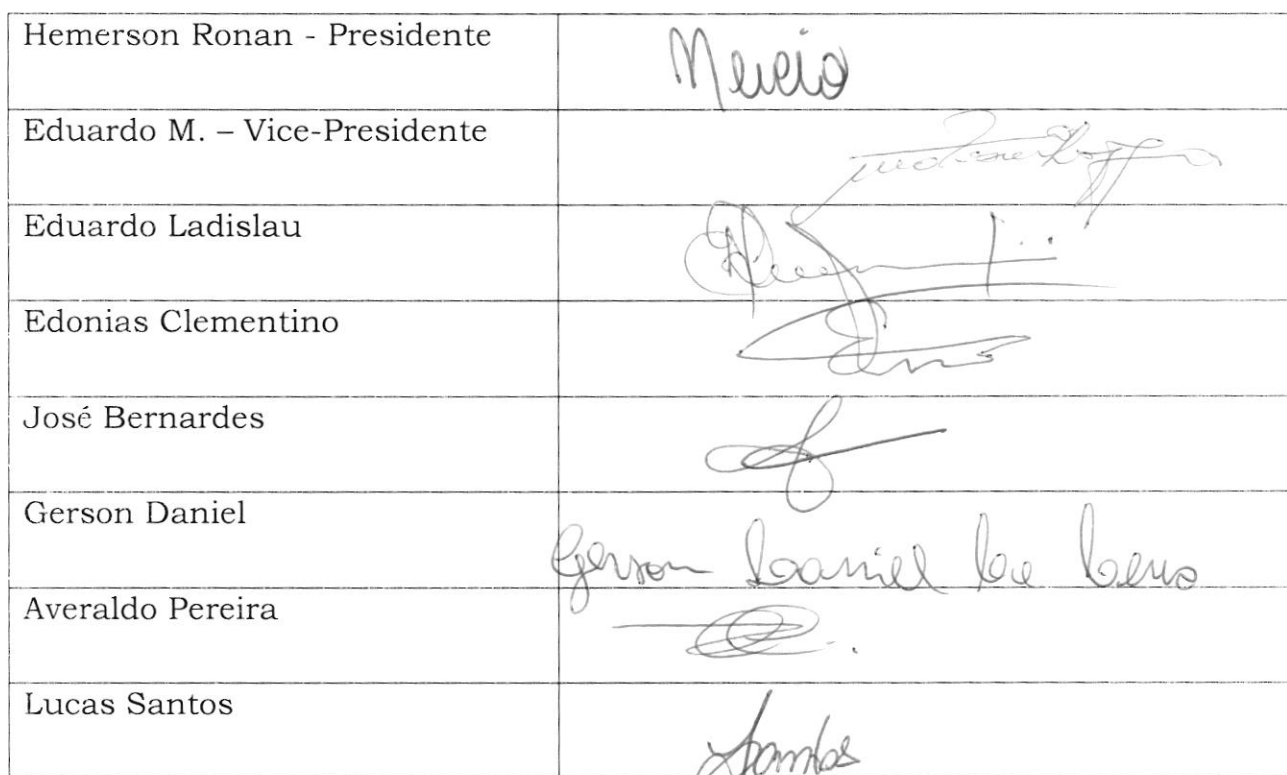 Hemerson Ronan - Presidente
Eduardo M. – Vice-Presidente
Eduardo Ladislau
Edonias Clementino
José Bernardes
Gerson Daniel
Gerson Daniel de Deus
Averaldo Pereira
Lucas Santos
Santos